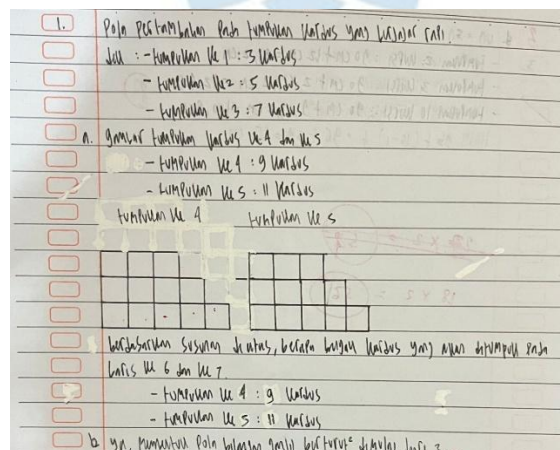 1. Pola Pertambahan Pada tumpukan kardus yang berjajar rapi.
Dik : - tumpukan ke 1 : 3 kardus
- tumpukan ke 2 = 5 kardus
- tumpukan ke 3 = 7 kardus
a. gambar tumpukan kardus ke 4 dan ke 5
- tumpukan ke 4 : 9 kardus
- tumpukan ke 5 : 11 kardus
tumpukan ke 4 tumpukan ke 5
berdasarkan susunan diatas, berapa kardus yang akan ditumpuk pada
baris ke 6 dan ke 7.
- tumpukan ke 4 : 9 kardus
- tumpukan ke 5 : 11 kardus
b ya, Pola bilangan ganjil berturut² dimulai 3